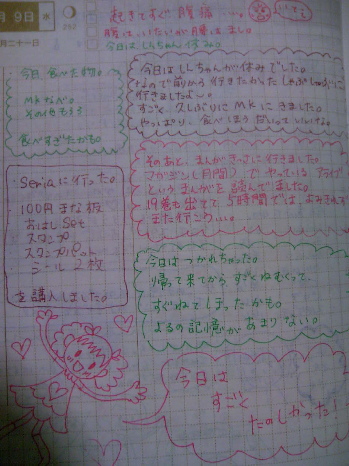 9日 水
二十一日
起きてすぐ腹痛…。
腹はいたいが腹はへる。
今日はしんちゃん休み。
今日食べた物。
MKなべ。
その他もろもろ
食べすぎたかも。
今日はしんちゃんが休みでした。
なので前から行きたかったしゃぶしゃぶに
行きましたよ～。
すごく久しぶりにMKにきました。
やっぱり、食べほうだいっていいね。
そのあと、まんがきっさに行きました。
マガジン(月間)でやっている
というまんがを読んできました。
19巻も出てて5時間では、よみきれず
また行こうっと。
Seriaに行った。
100円まな板
おはしSet
スタンプ
スタンプパット
シール2枚
を購入しました。
今日はつかれちゃった。
帰って来てからすごくねむくって、
すぐねてしまったかも。
よるの記憶があまりない。
今日は
すごく
たのしかった!